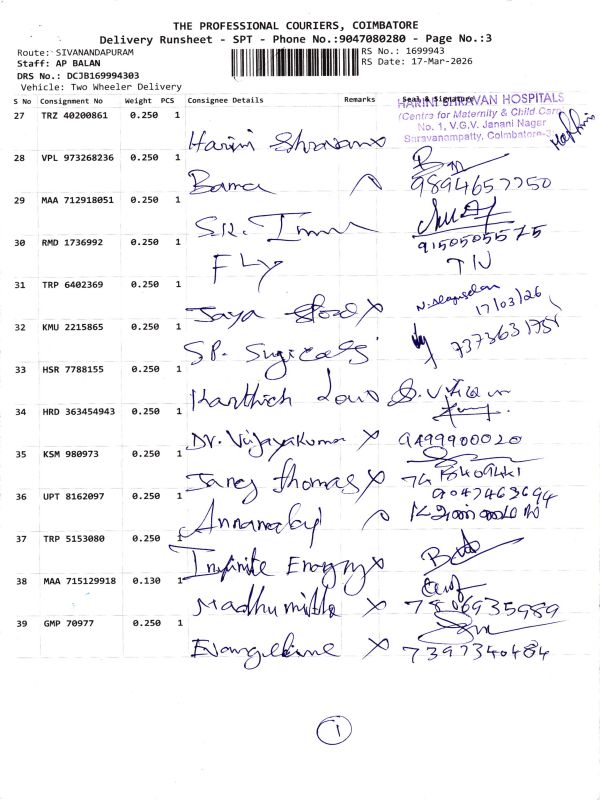 THE PROFESSIONAL COURIERS, COIMBATORE
Delivery Runsheet - SPT - Phone No.:9047080280 - Page No.:3
Route: SIVANANDAPURAM
Staff: AP BALAN
DRS No.: DCJB169994303
Vehicle: Two Wheeler Delivery
RS No.: 1699943
RS Date: 17-Mar-2026
S No Consignment No Weight PCS Consignee Details Remarks Seal & Signature
HARINI SHRAVAN HOSPITALS
(Centre for Maternity & Child Care)
No. 1, V.G.V. Janani Nagar
Saravanampatty, Coimbatore-3
27 TRZ 40200861 0.250 1
Harini Shravan x
28 VPL 973268236 0.250 1
Bama
9894657750
29 MAA 712918051 0.250 1
S.R.
9150505575
30 RMD 1736992 0.250 1
FLY
31 TRP 6402369 0.250 1
Jaya x
17/03/26
32 KMU 2215865 0.250 1
SP.
7373631758
33 HSR 7788155 0.250 1
Karthick
34 HRD 363454943 0.250 1
Dr. Vijayakumar x
9499900020
35 KSM 980973 0.250 1
Jancy Thomas x
36 UPT 8162097 0.250 1
9047463694
Annamalai
37 TRP 5153080 0.250 1
Infinite Energy x
38 MAA 715129918 0.130 1
Madhumitha x
7806935989
39 GMP 70977 0.250 1
Evangeline x
7397340484
1